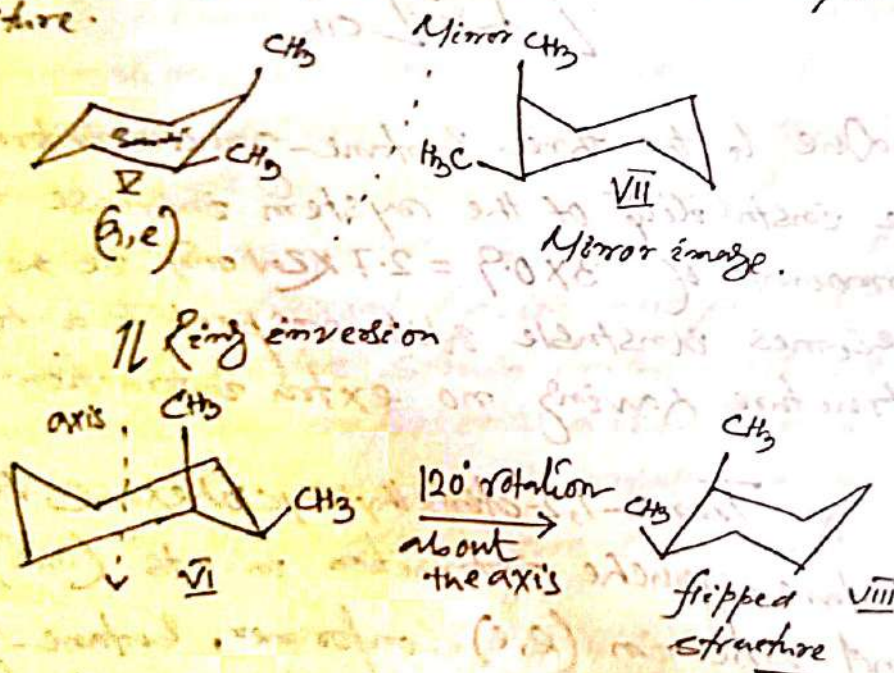 ture.
Mirror
CH3
CH3
CH3
H3C
CH3
V
(a,e)
VII
Mirror image.
⇌ Ring inversion
axis
CH3
CH3
VI
120° rotation
about
the axis
CH3
CH3
flipped
structure
VIII